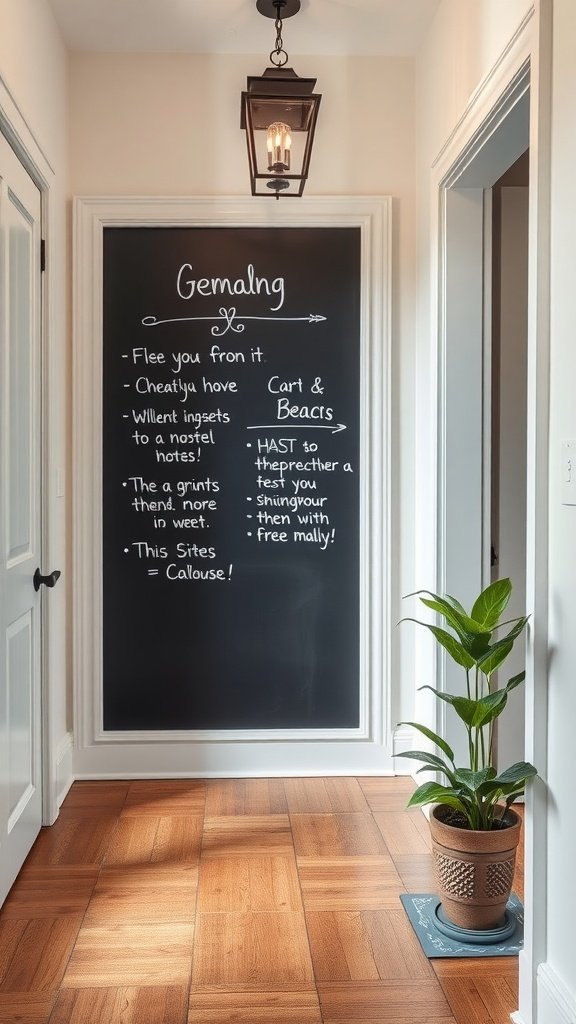 Gemalng
- Flee you fron it
- Cheatlya hove
- Wllent ingsets
to a nostel
notes!
• The a grints
thend. nore
in weet.
• This Sites
= Calouse!
Cart &
Beacts
• HAST to
theprecther a
test you
• shiingvour
• then with
• free mally!